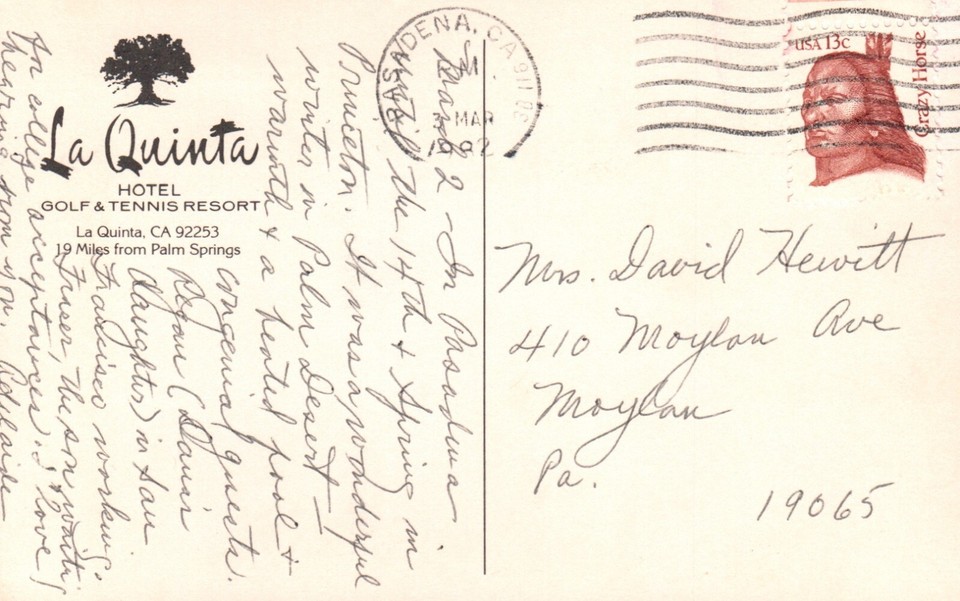 La Quinta
HOTEL
GOLF & TENNIS RESORT
La Quinta, CA 92253
19 Miles from Palm Springs
PASADENA, CA 911
PM
3 MAR
1992
USA 13c
Crazy Horse
March 2 - In Pasadena
until the 14th & Spring in
Princeton. It was a wonderful
winter in Palm Desert -
warmth & a heated pool &
congenial guests.
Regan (
daughter) in San
Francisco working.
Fraser, the son, waiting
for college acceptances. I love
hearing from you. Adelaide
Mrs. David Hewitt
410 Moylan Ave
Moylan
Pa.
19065